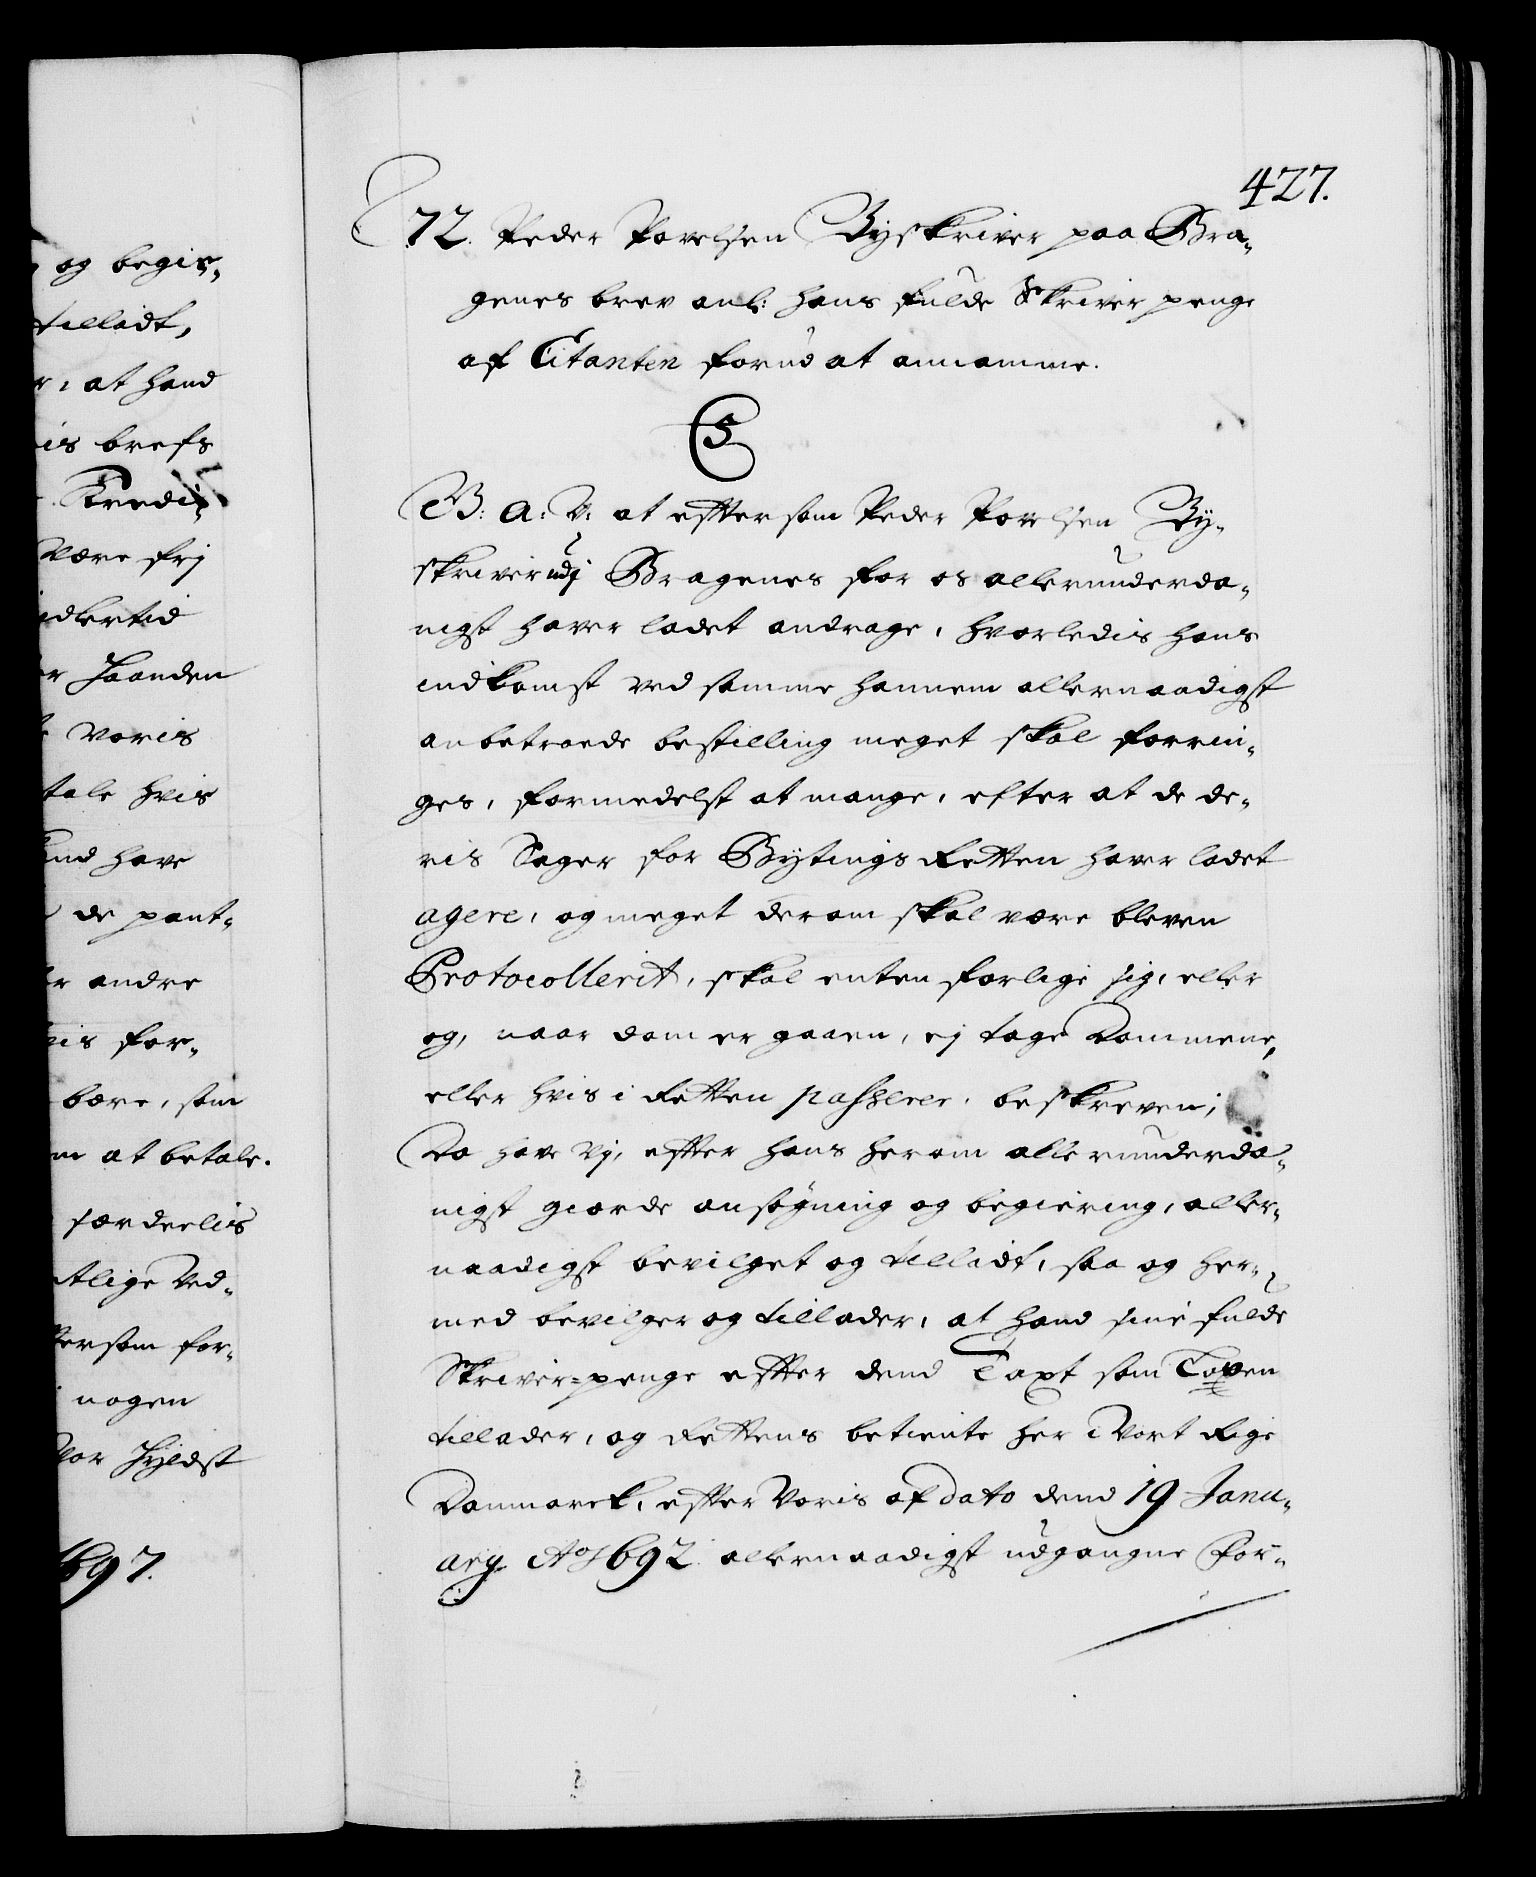 427.
72. Peder Povelsen Byskriver paa Bra-
genes brev anl: hans fulde Skriver penge
af Citanten forud at annamme.
C5
V: A: V: at efftersom Peder Povelsen By-
skriver udj Bragenes for os allerunderda-
nigst haver ladet andrage, hvorledis hans
indkomst ved samme hannem allernaadigst
anbetroede bestilling meget skal forrin-
ges, formedelst at mange, efter at de de-
ris Sager for Bytings Retten haver ladet
agere, og meget derom skal være bleven
Protocollerit, skal enten forlige sig, eller
og, naar dom er gaaen, ej tage Dommene,
eller hvis i Retten passerer, beskreven;
Da have Vj, effter hans herom allerunderda-
nigst giorde ansøgning og begiering, aller-
naadigst bevilget og tilladt, saa og her-
med bevilger og tillader, at hand sine fulde
Skriver-penge effter dend Taxt som Loven
tillader, og Rettens betiente her i Vort Rige
Danmarck, effter Voris af dato dend 19 Janu-
arij Ao 1692 allernaadigst udgangne For-
og begie-
tilladt,
r, at hand
is brefs
Credi-
Være frj
idlertid
r Haanden
Voris
tale hvis
und have
de pant-
r andre
is for-
bære, som
m at betale.
særdeelis
tlige Ved-
ersom for-
nogen
Vor Hyldst
1697.